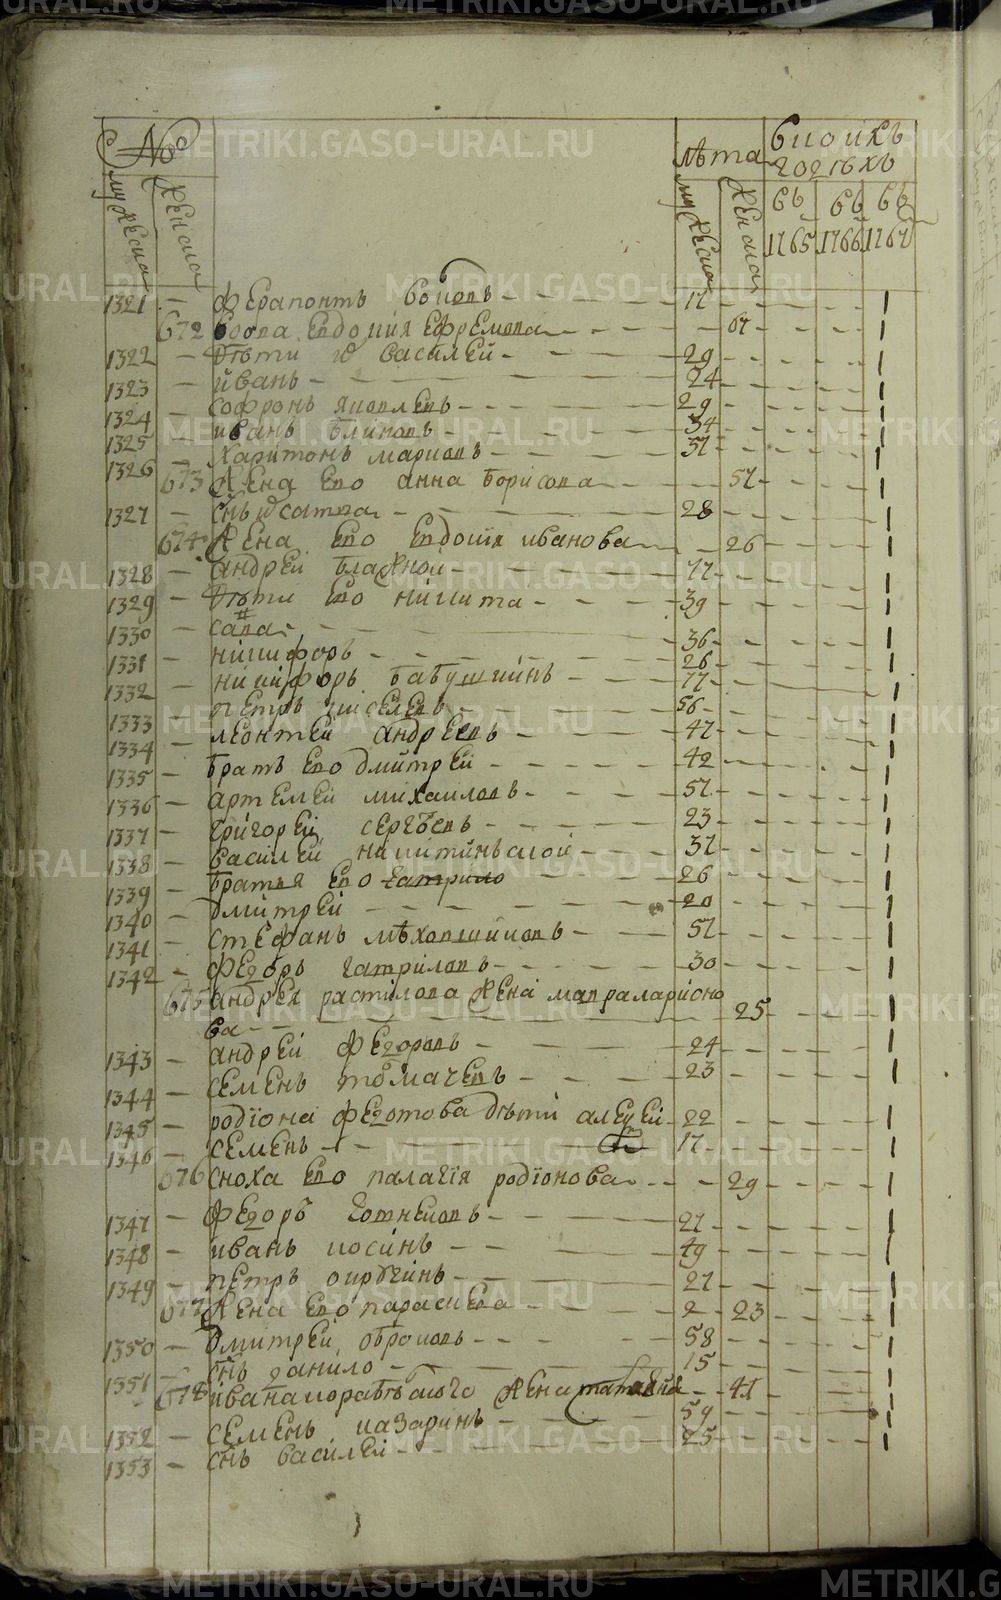 № лѣта в коихъ
годѣхъ
мужеска женска мужеска женска въ въ въ
1765 1766 1767
1321 — Ферапонтъ — 17
672 вдова Евдокия Ефремова — 67
1322 — дѣти Василей — 29
1323 — Иванъ — 24
1324 — Софронъ Яковлевъ — 29
1325 — Иванъ — 34
1326 — Харитонъ Марковъ — 57
673 Жена ево Анна Борисова — 57
1327 — снъ — 28
674 Жена ево Евдокия Иванова — 26
1328 — Андрей Блажной — 77
1329 — дѣти ево Никита — 39
1330 — Сава — 36
1331 — Никифоръ — 26
1332 — Никифоръ Бабушкинъ — 77
1333 — Петръ Киселевъ — 56
1334 — Леонтей Андреевъ — 47
1335 — братъ ево Дмитрей — 42
1336 — Артемей Михаиловъ — 57
1337 — Григорей Сергѣевъ — 23
1338 — Василей — 37
1339 — братья ево Гаврило — 26
1340 — Дмитрей — 20
1341 — Стефанъ Мѣховщиковъ — 57
1342 — Федоръ Гавриловъ — 30
675 Андрея жена Мавра Ларионо
ва — 25
1343 — Андрей Федоровъ — 24
1344 — Семенъ Толмачевъ — 23
1345 — Родїона Федотова дѣти Алексей 22
1346 — Семенъ — 17
676 Сноха ево Палагїя Родїонова — 29
1347 — Федоръ — 27
1348 — Иванъ Косинъ — 49
1349 — Петръ — 27
677 Жена ево Параскева — 23
1350 — Дмитрей — 58
1351 — снъ Данило — 15
678 Ивана жена — 41
1352 — Семенъ Назаринъ — 59
1353 — снъ Василей — 25
METRIKI.GASO-URAL.RU